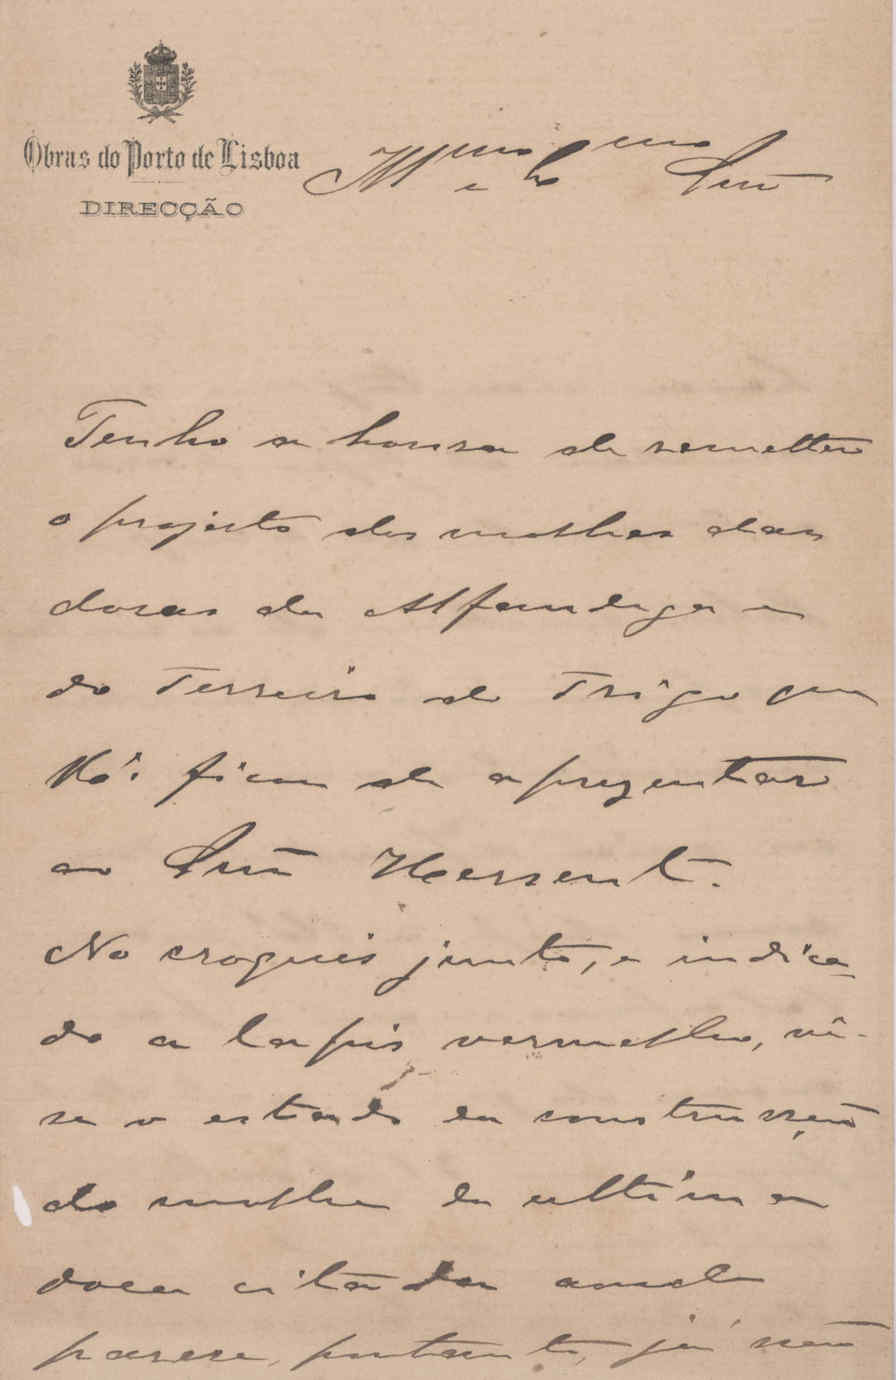 Obras do Porto de Lisboa
DIRECÇÃO
Illmo e Exmo Snr
Tenho a honra de remetter
o projecto dos molhes das
docas da Alfandega e
do Terreiro do Trigo que
V. Exa. ficou de aprezentar
ao Snr Hersent.
No croquis junto, e indica
do a lapis vermelho, vê-
se o estado da construcção
do molhe da ultima
doca citada onde
parece, portanto, já não